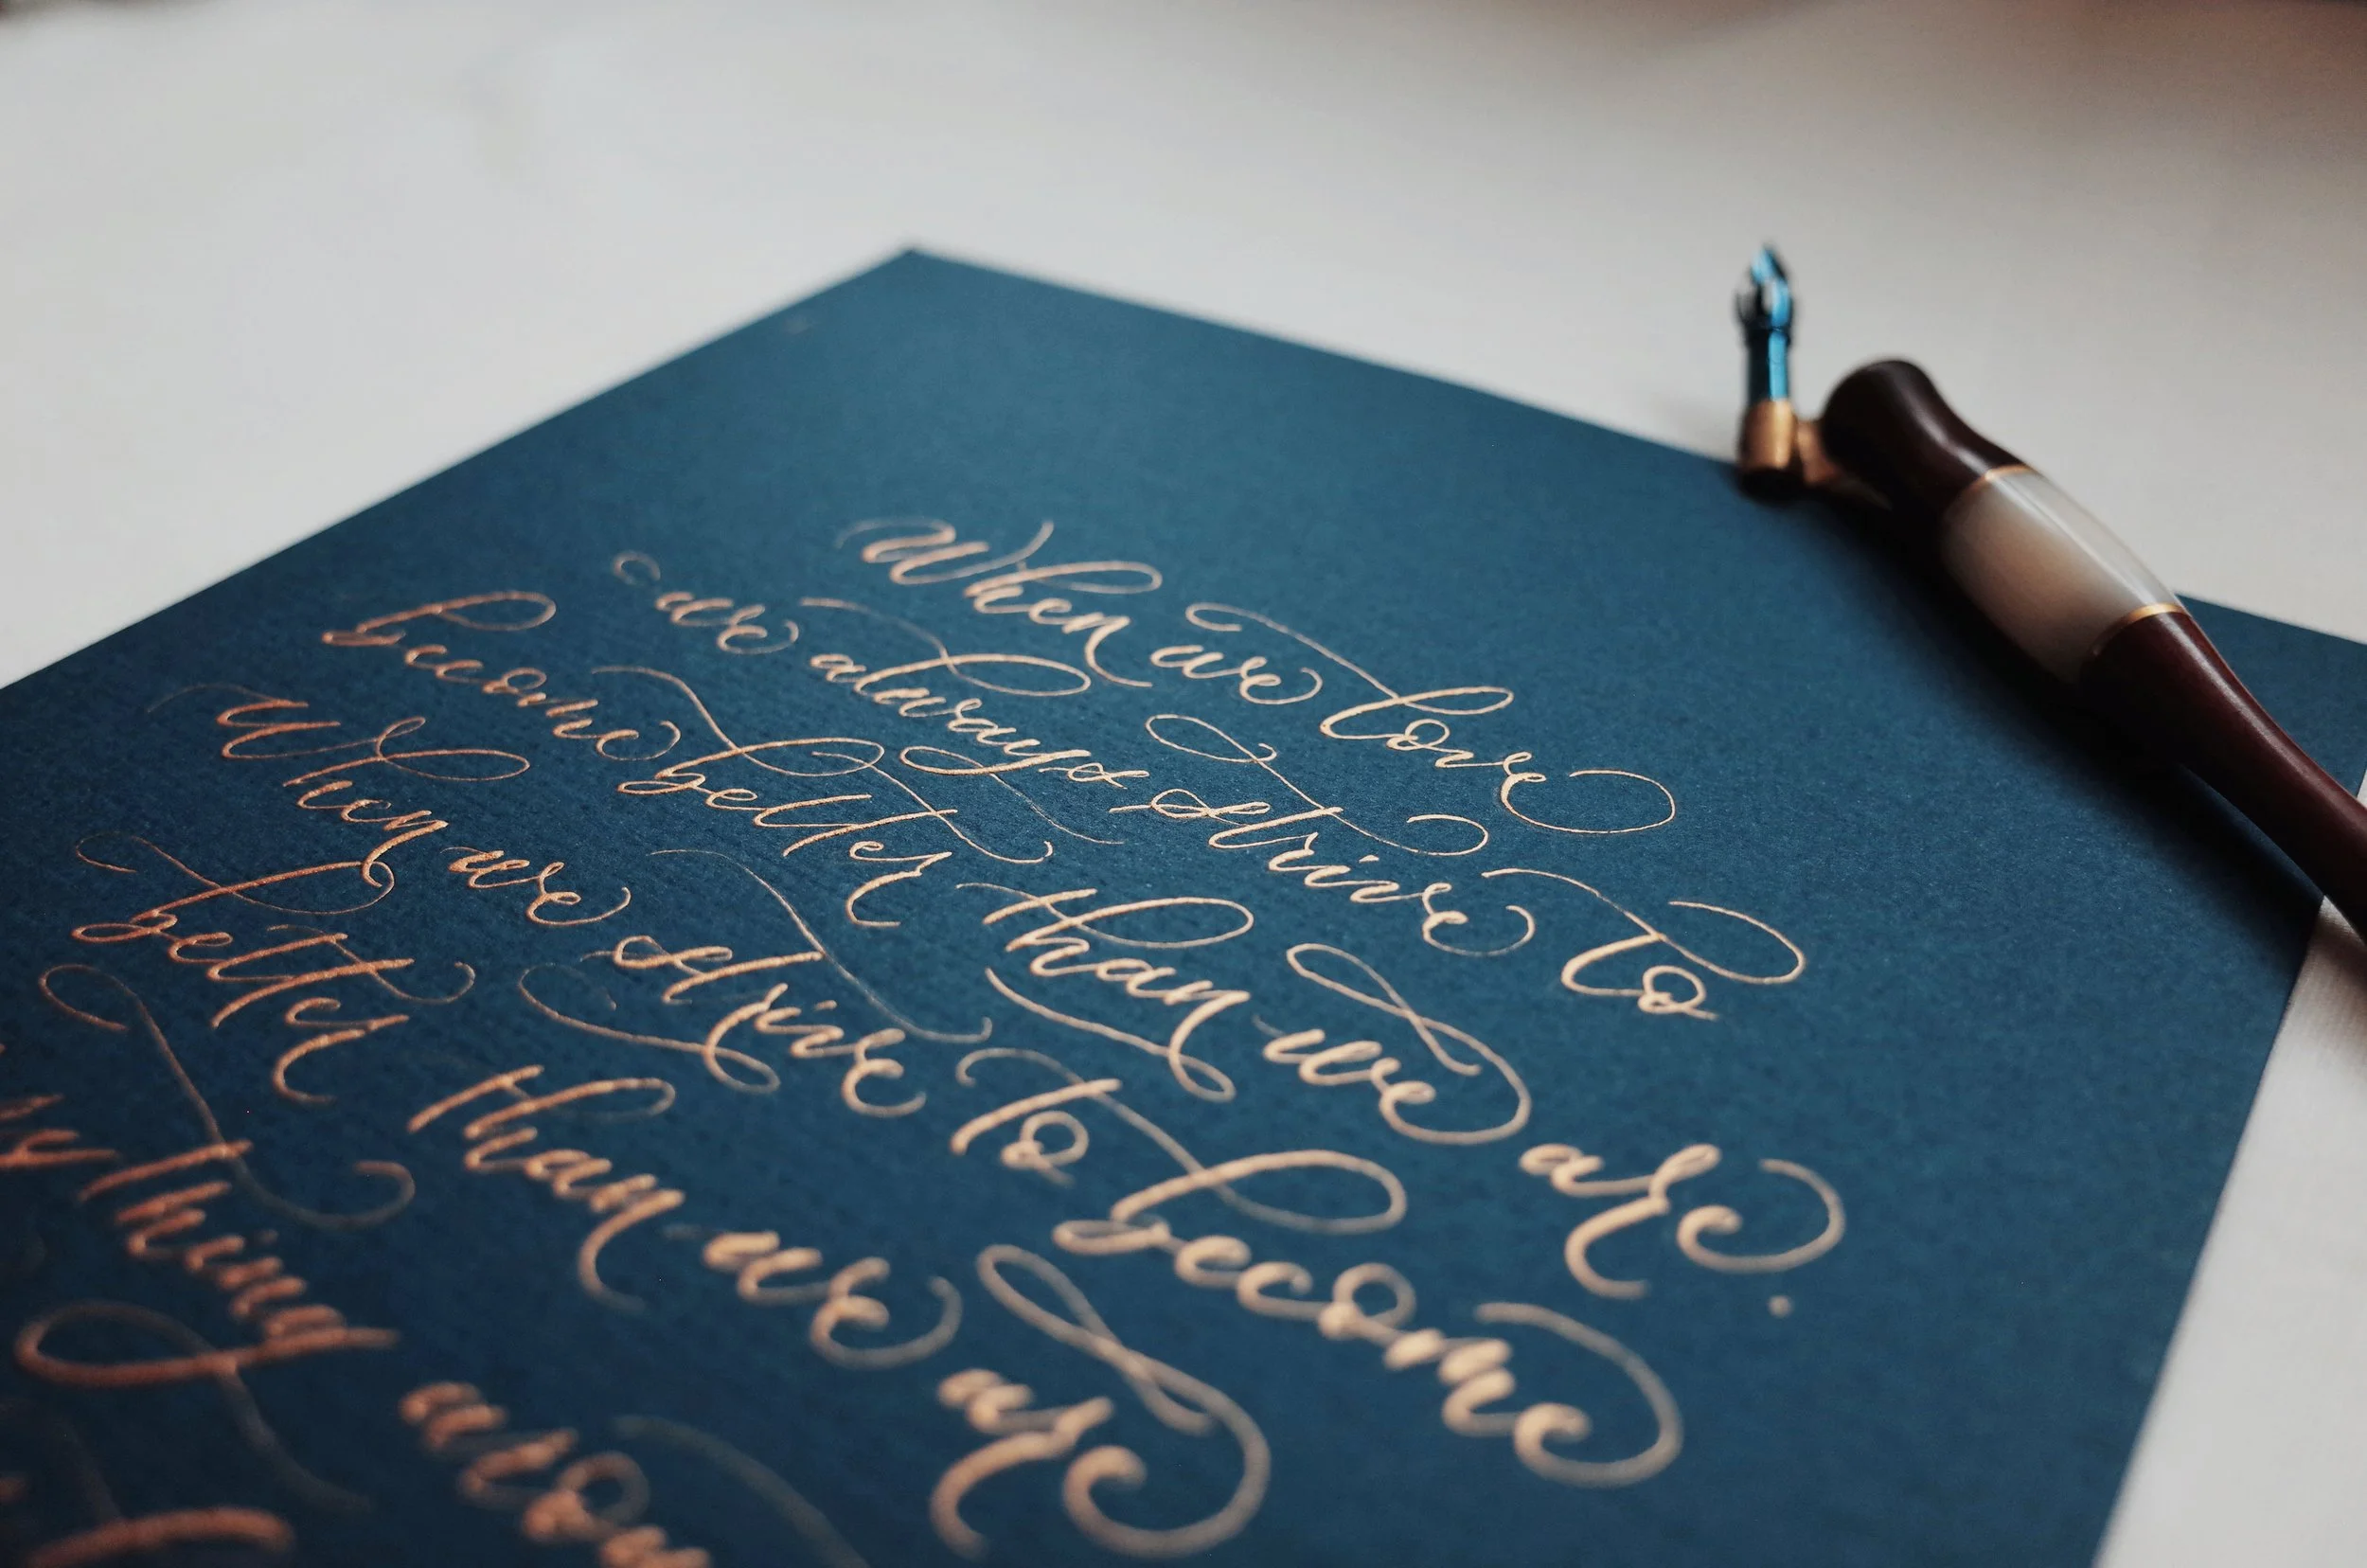 When we love
we always strive to
become better than we are.
When we strive to become
better than we are
thing